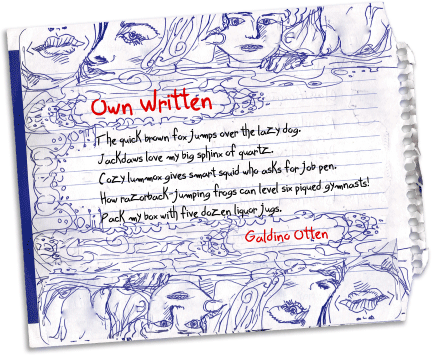 Own Written
The quick brown fox jumps over the lazy dog.
Jackdaws love my big sphinx of quartz.
Cozy lummox gives smart squid who asks for job pen.
How razorback-jumping frogs can level six piqued gymnasts!
Pack my box with five dozen liquor jugs.
Galdino Otten